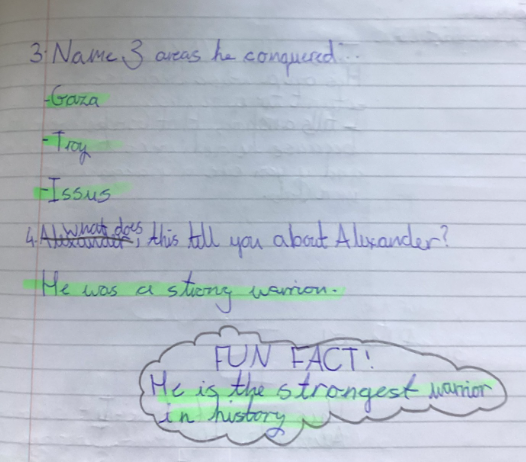 3. Name 3 areas he conquered...
-Gaza
-Troy
-Issus
what does
4. Alexander, this tell you about Alexander?
He was a strong warrior.
FUN FACT!
He is the strongest warrior
in history